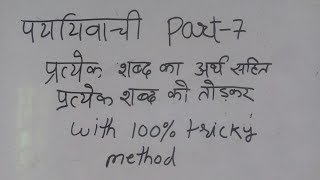 पर्यायवाची Part-7
प्रत्येक शब्द का अर्थ सहित
प्रत्येक शब्द को तोड़कर
with 100% tricky
method